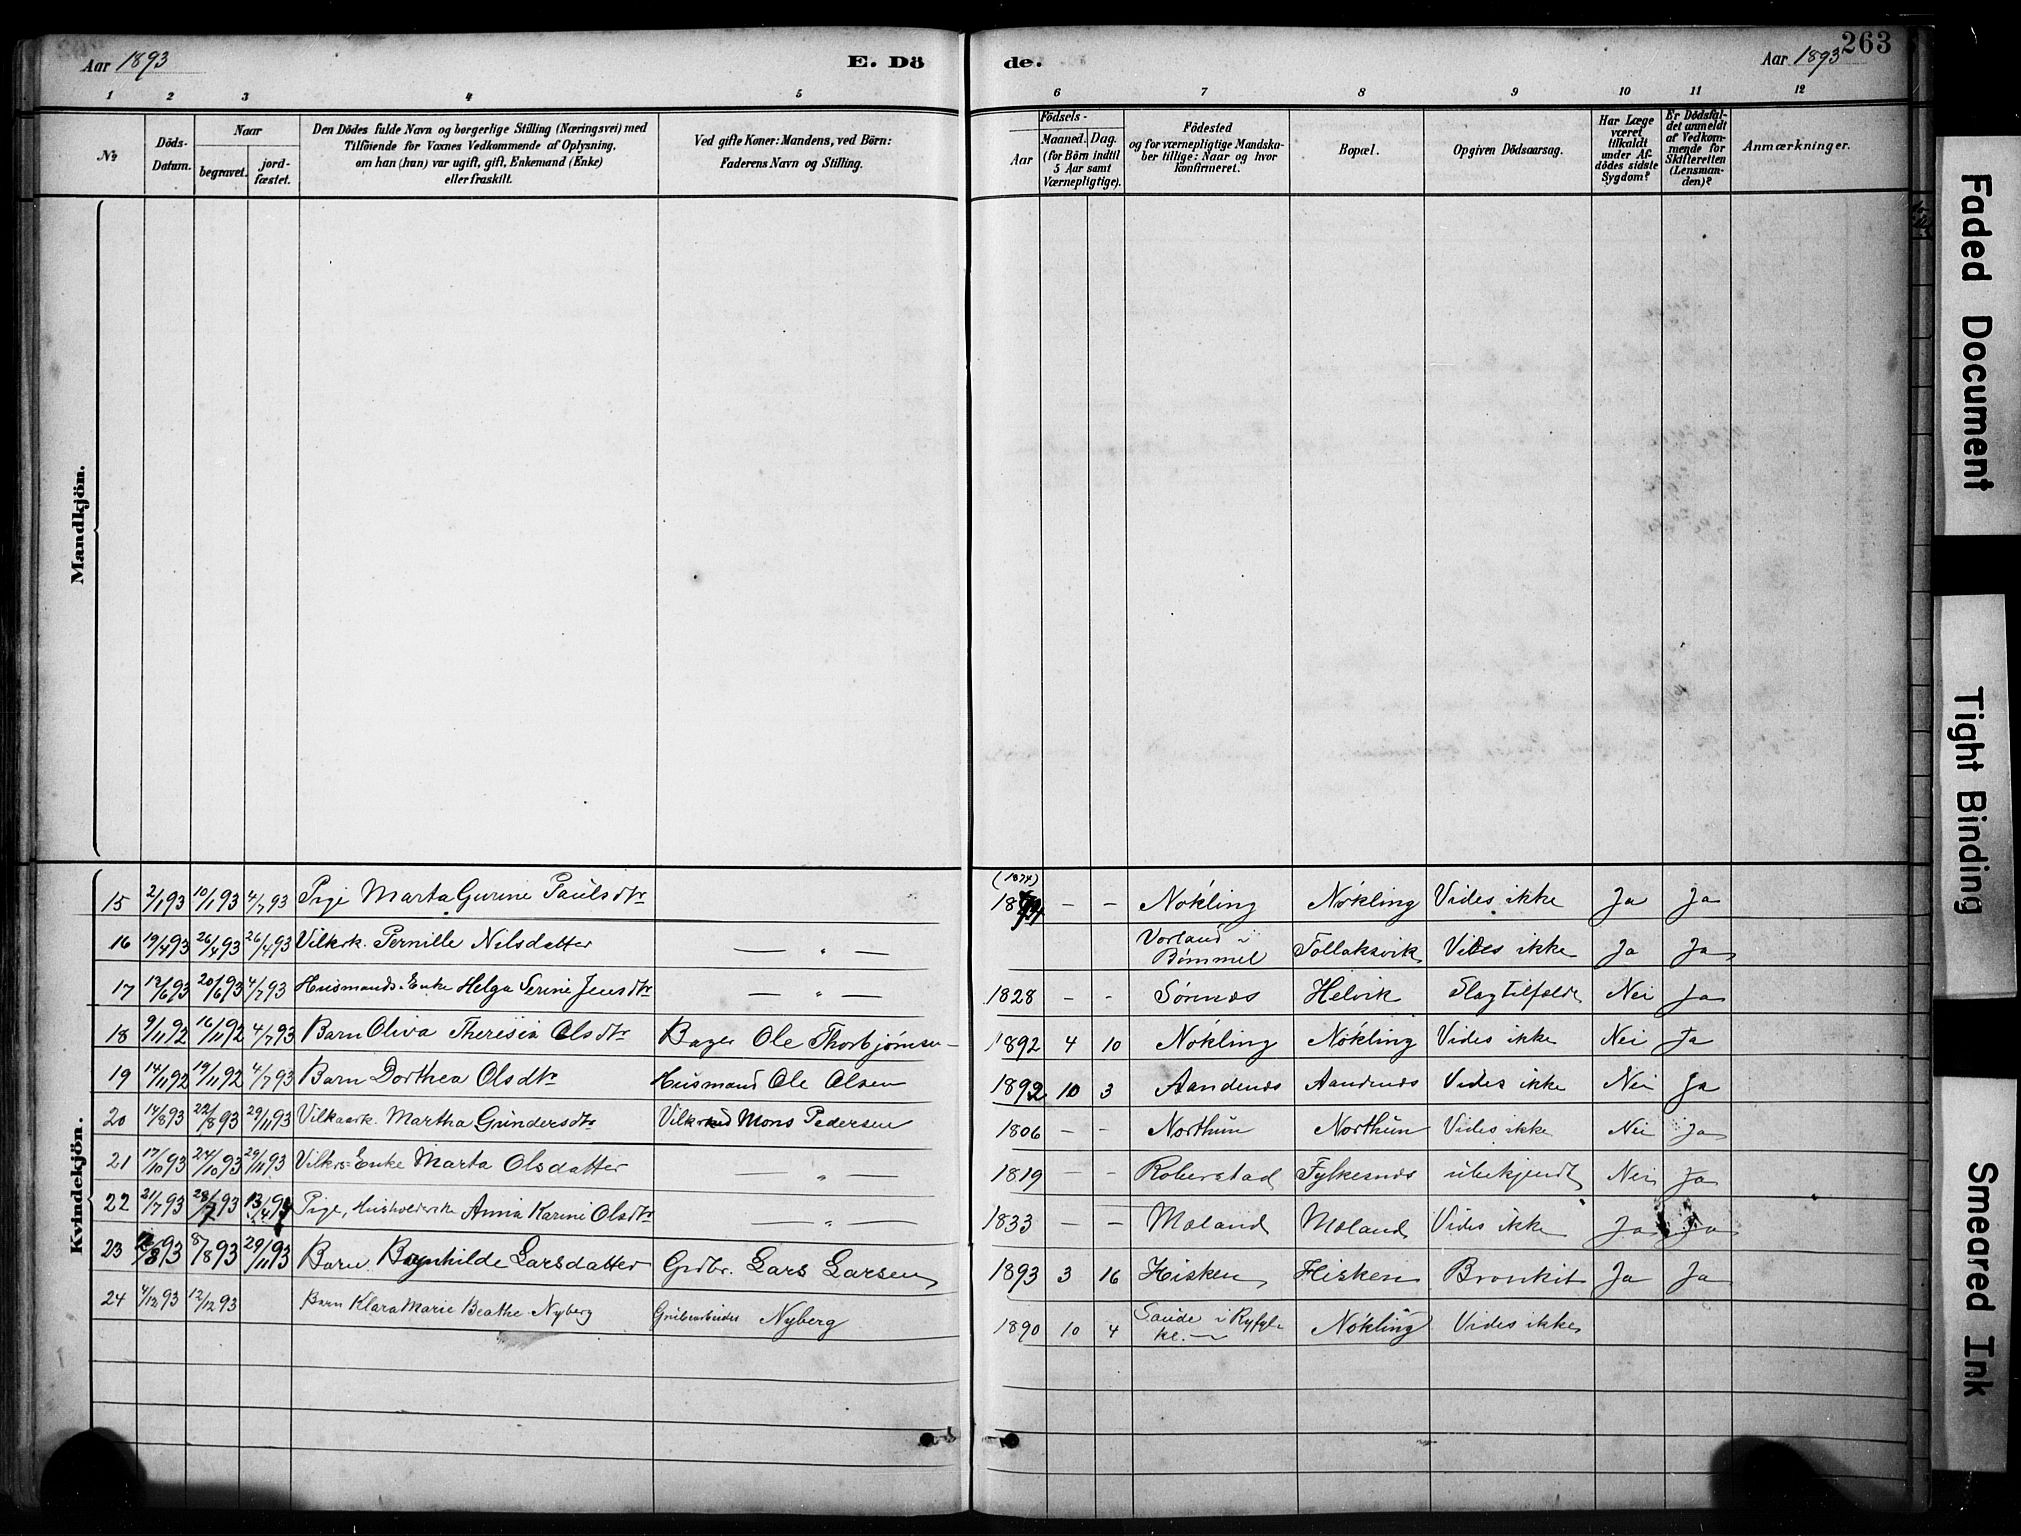 Aar 1893 E. Dö de. Aar 1893 263
1 2 3 4 5 6 7 8 9 10 11 12
№
Döds-Datum.
Naar
begravet.
jord-fæstet.
Den Dödes fulde Navn og borgerlige Stilling (Næringsvei) med
Tilföiende for Voxnes Vedkommende af Oplysning,
om han (hun) var ugift, gift, Enkemand (Enke)
eller fraskilt.
Ved gifte Koner: Mandens, ved Börn:
Faderens Navn og Stilling.
Födsels-
Aar
Maaned. Dag.
(for Börn indtil
5 Aar samt
Værnepligtige).
Födested
og for værnepligtige Mandska-
ber tillige: Naar og hvor
konfirmeret.
Bopæl.
Opgiven Dödsaarsag.
Har Læge
været
tilkaldt
under Af-
dödes sidste
Sygdom?
Er Dödsfal-
det anmeldt
af Vedkom-
mende for
Skifteretten
(Lensman-
den)?
Anmærkninger.
Mandkjön.
Kvindekjön.
(1874)
15 2/1 93 10/1 93 4/7 93 Pige Marta Gurine Paulsdtr — — Nökling Nökling Vides ikke Ja Ja
16 19/4 93 26/4 93 26/4 93 Vilkrk. Pernille Nilsdatter — " — Vorland i
Bömmel Follaksvik Vides ikke Ja Ja
17 12/6 93 20/6 93 4/7 93 Husmands Enke Helga Serine Jensdtr — " — 1828 — — Sörenæs Helvik Slagtilfælde Nei Ja
18 9/11 92 16/11 92 4/7 93 Barn Oliva Theresia Olsdtr Bager Ole Thorbjörnsen 1892 4 10 Nökling Nökling Vides ikke Nei Ja
19 14/11 92 19/11 92 4/7 93 Barn Dorthea Olsdtr Husmand Ole Olsen 1892 10 3 Aandenæs Aandenæs Vides ikke Nei Ja
20 14/8 93 22/8 93 29/11 93 Vilkaark. Martha Gundersdtr Mons Pedersen 1806 — — Northun Northun Vides ikke Nei Ja
21 17/10 93 24/10 93 29/11 93 Vilkrs Enke Marta Olsdatter — " — 1819 — — Roberstad Fylkesnæs ubekjendt Nei Ja
22 21/7 93 28/7 93 Pige, Anna Karine Olsdtr — " — 1833 — — Mæland Mæland Vides ikke Ja Ja
23 93 8/8 93 29/11 93 Barn Ragnhilde Larsdatter Grdbr. Lars Larsen 1893 3 16 Hisken Hisken Bronkit Ja Ja
24 4/12 93 12/12 93 Barn Klara Marie Beathe Nyberg Grubearbeider Nyberg 1890 10 4 Sande i Ryfyl-
ke. Nökling Vides ikke
Faded Document
Tight Binding
Smeared Ink